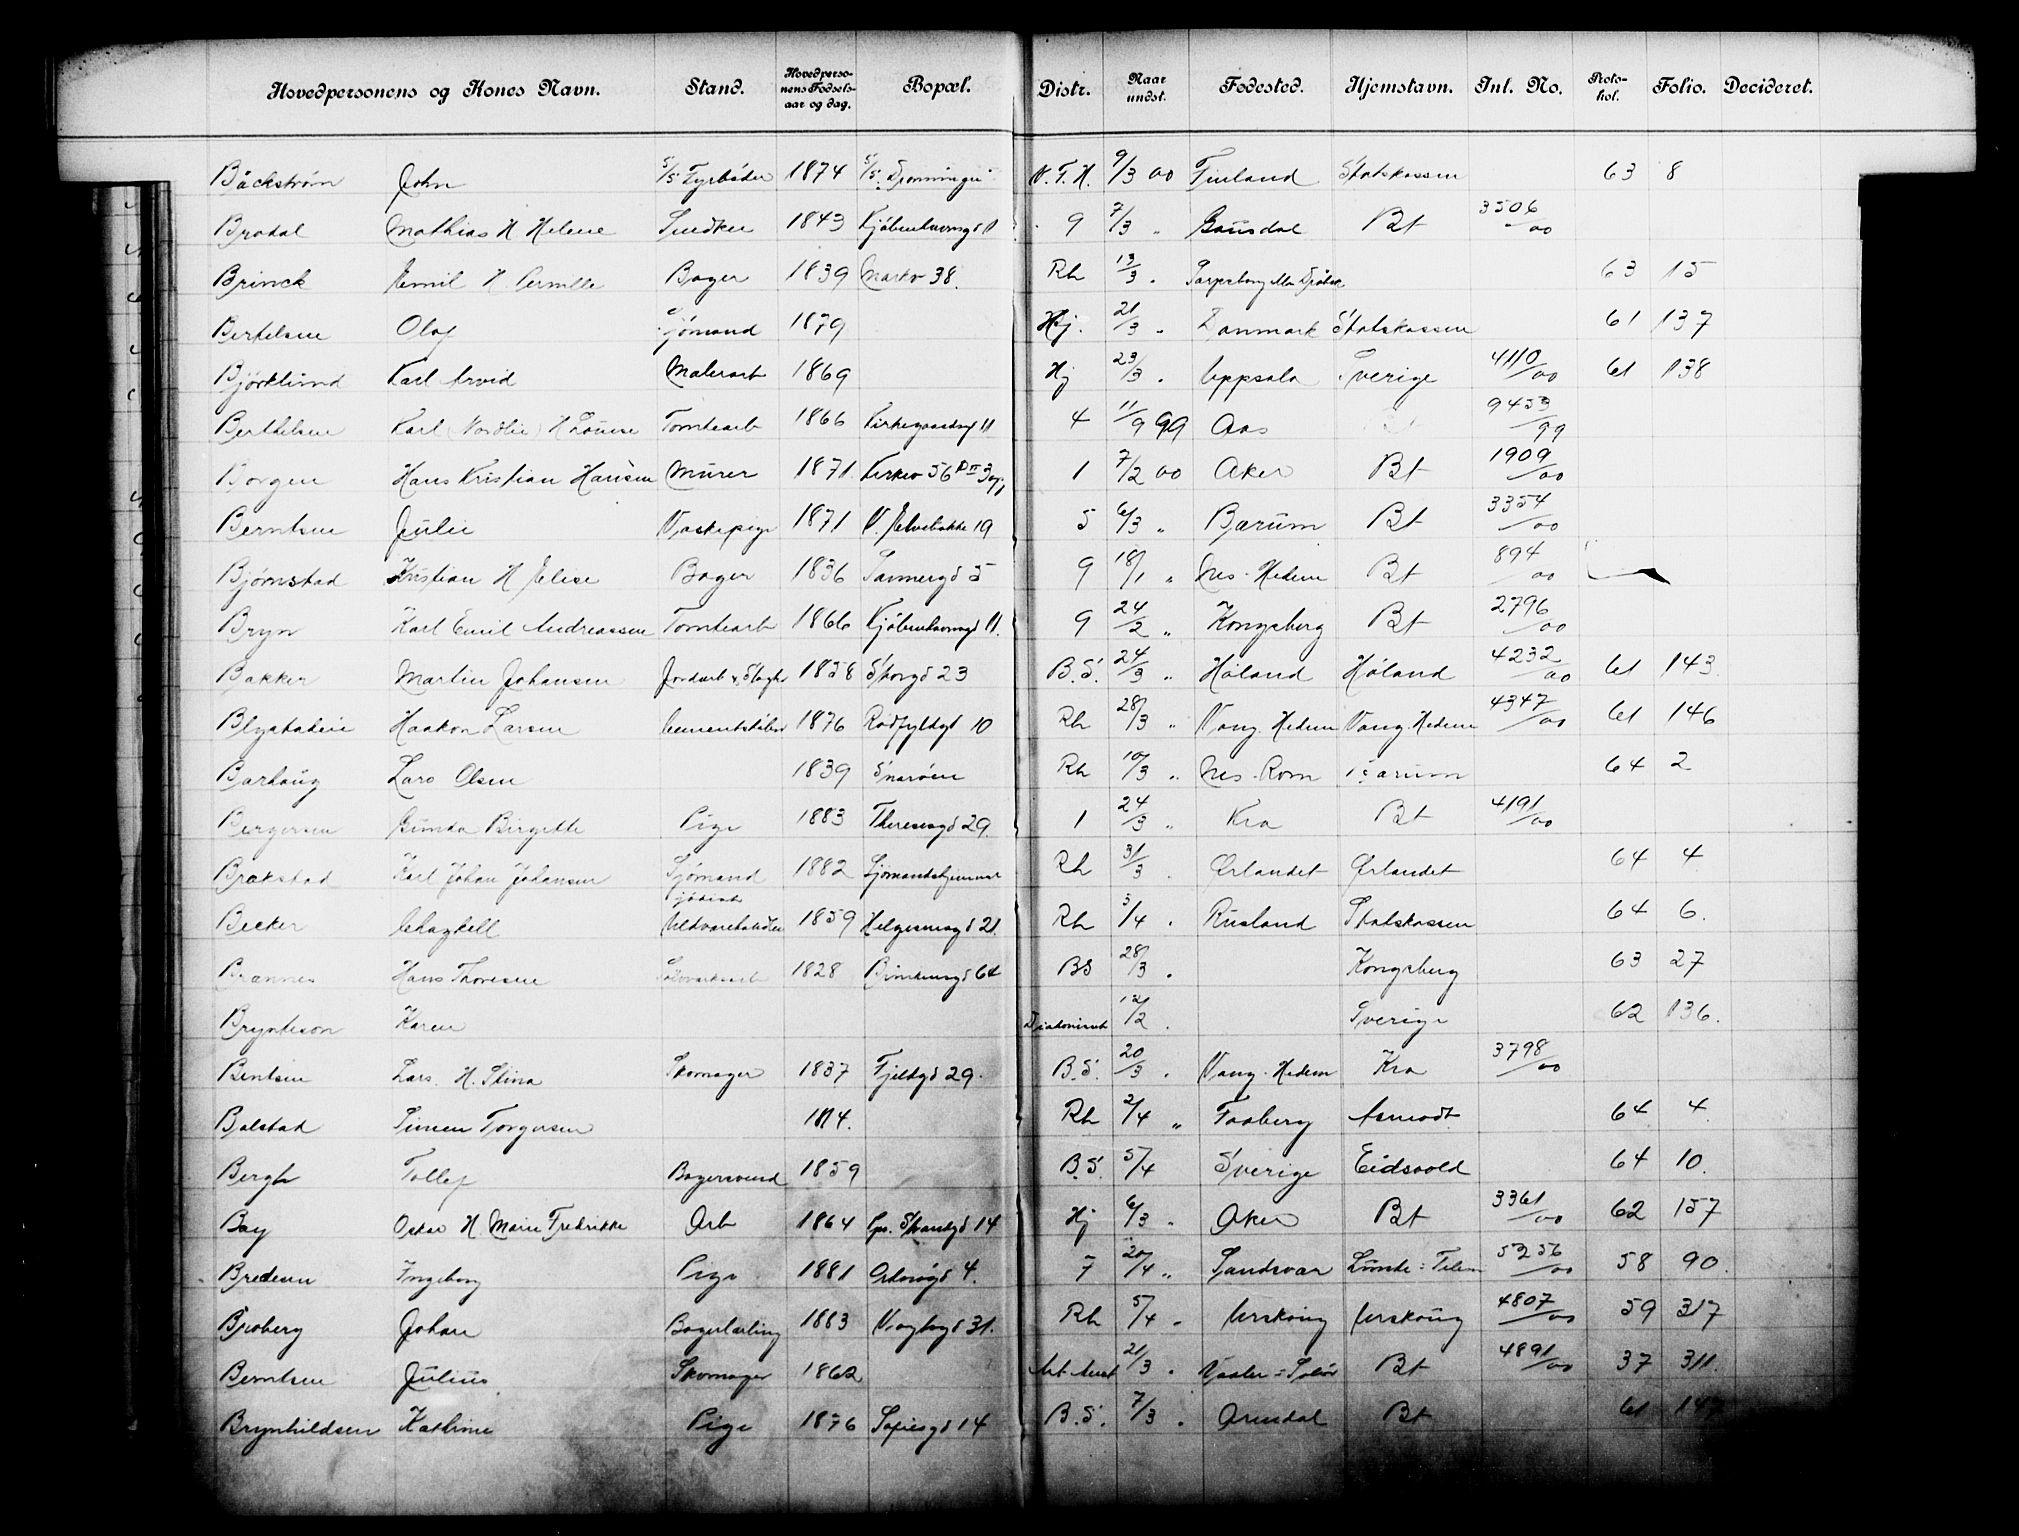 Hovedpersonens og Kones Navn. Stand. Hovedpersonens Fødselsaar og dag. Bopæl. Distr. Naar undst. Fødested. Hjemstavn. Inl. No. Protokol. Folio. Decideret.
Bäckström John S/S Fyrbøder 1874 S/S "Dronningen" V.F.H. 9/3 00 Finland Statskassen 63 8
Brodal Mathias H Helene Snedker 1843 Kjøbenhavnsgd 11 9 7/3 " Gausdal Bt 3506/00
Brinck Emil H. Pernille Bager 1839 Markv 38. Rh 13/3 " Sarpsborg 63 15
Bertelsen Olaf Sjømand 1879 Hj. 21/3 " Danmark Statskassen 61 137
Björklund Karl Arvid Malerarb 1869 Hj 23/3 " Uppsala Sverige 4110/00 61 138
Berthelsen Karl (Nordlie) H Louise Tomtearb 1866 Kirkegaardsgd 11 4 11/9 99 Aas Bt 9453/99
Borgen Hans Kristian Hansen Murer 1871 Kirkev 56 1 7/2 00 Aker Bt 1909/00
Berntsen Julie Vaskepige 1871 V. Elvebakke 19 5 6/3 " Bærum Bt 3354/00
Bjørnstad Kristian H Elise Bager 1836 Sannergd 5 9 18/1 " Nes - Hedem Bt 894/00
Bryn Karl Emil Andreassen Tomtearb 1866 Kjøbenhavnsgd 11. 9 24/2 " Kongsberg Bt 2796/00
Bakker Martin Johansen Jordarb & Slagter 1858 Storgd 23 B.S. 24/3 " Høland Høland 4232/00 61 143
Blystadeie Haakon Larsen Cementstøber 1876 Rodfyldgt 10 Rh 28/3 " Vang. Hedem Vang. Hedem 4347/00 61 146
Barhaug Lars Olsen 1839 Snarøen Rh 10/3 " Nes - Rom Bærum 64 2
Bergersen Gunda Birgitte Pige 1883 Theresesgd 29. 1 24/3 " Kra Bt 4191/00
Brækstad Karl Johan Johansen Sjømand 1882 Sjømandshjemmet Rh 31/3 " Ørlandet Ørlandet 64 4
Becker Chazkell jødisk Uldvarehandler 1859 Helgesensgd 21. Rh 3/4 " Rusland Statskassen 64 6.
Brænnes Hans Thoresen Sølvverksarb 1828 Brinkensgd 64 BS 28/3 " Kongsberg 63 27
Brynteson Karen Diakonisseh 12/2 " Sverige 62 136.
Bentsen Lars. H. Stina Skomager 1837 Fjeldgd 29. B.S. 20/3 " Vang. Hedem Kra 3798/00
Bolstad Simen Torgersen Rh 2/4 " Faaberg Asmodt 64 4
Bergh Tollef Bagersvend 1859 B.S. 5/4 Sverige Eidsvold 64 10.
Bay Oskar H. Marie Fredrikke Arb 1864 Ths. Skansegd 14 Hj 6/3 " Aker Bt 3361/00 62 157
Bredesen Ingeborg Pige 1881 4. 7 20/4 " Sandsvær Lunde - Telem 5256/00 58 90.
Bjoberg Johan Bagerlærling 1883 Vogtsgd 31. Rh 5/4 " Urskoug Urskoug 4807/00 59 317
Berntsen Julius Skomager 1862 Arb Anst 21/3 " Vaaler = Solør Bt 4891/00 37 311.
Brynhildsen Kathrine Pige 1876 Sofiesgd 14 B.S. 7/3 " Arendal Bt 61 147